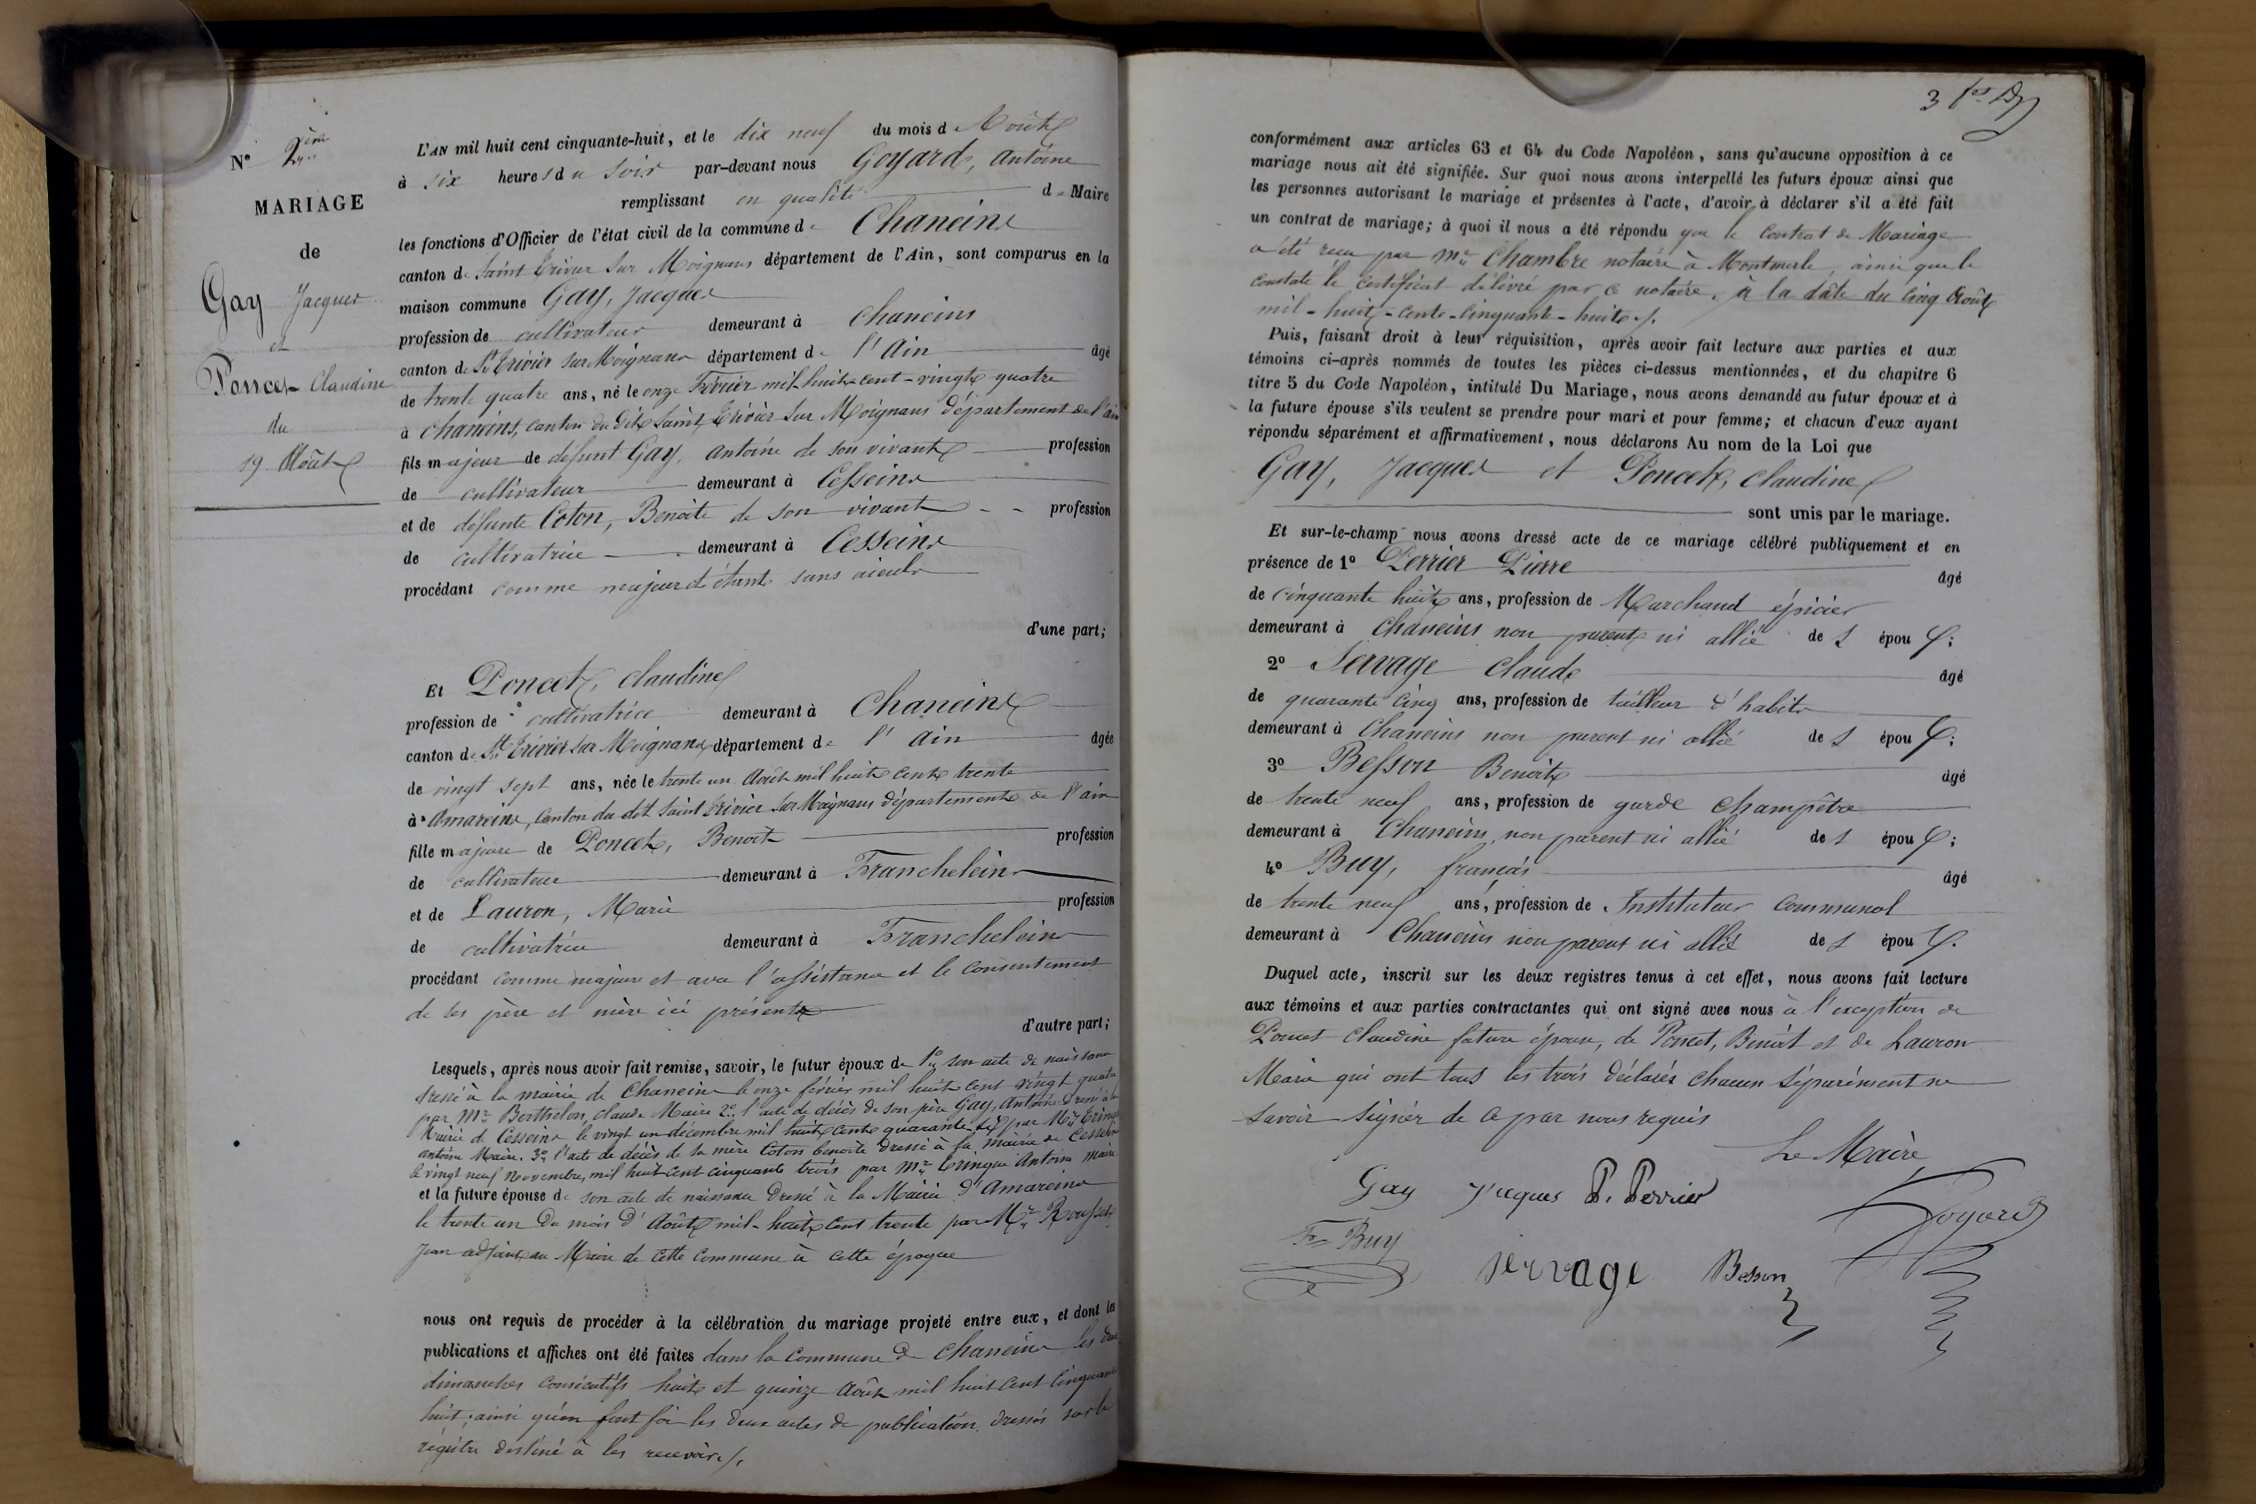 N° 2ème
MARIAGE
de
Gay Jacques
et
Poncet Claudine
du
19 Août
L'AN mil huit cent cinquante-huit, et le dix neuf du mois d'Août
à six heures du soir par-devant nous Goyard, Antoine
remplissant en qualité de Maire
les fonctions d'Officier de l'état civil de la commune de Chaneins
canton de Saint Trivier sur Moignans département de l'Ain, sont comparus en la
maison commune Gay, Jacques
profession de cultivateur demeurant à Chaneins
canton de St Trivier sur Moignans département de l'Ain âgé
de trente quatre ans, né le onze Février mil huit cent vingt quatre
à Chaneins, canton du dit Saint Trivier sur Moignans département de l'ain
fils majeur de défunt Gay, Antoine de son vivant profession
de cultivateur demeurant à Cesseins
et de défunte Coton, Benoite de son vivant profession
de cultivatrice demeurant à Cesseins
procédant comme majeur et étant sans aieuls
d'une part;
Et Poncet, Claudine
profession de cultivatrice demeurant à Chaneins
canton de St Trivier sur Moignans département de l'Ain âgée
de vingt sept ans, née le trente un Août mil huit cent trente
à Amareins, canton du dit Saint Trivier sur Moignans département de l'ain
fille majeure de Poncet, Benoit profession
de cultivateur demeurant à Francheleins
et de Lauron, Marie profession
de cultivatrice demeurant à Francheleins
procédant comme majeure et avec l'assistance et le consentement
de ses père et mère ici présents
d'autre part;
Lesquels, après nous avoir fait remise, savoir, le futur époux de 1° son acte de naissance
dressé à la mairie de Chaneins le onze février mil huit cent vingt quatre
par Mr Berthelon, claude Maire 2° l'acte de décès de son père Gay, Antoine dressé à la
Mairie de Cesseins le vingt un décembre mil huit cent quarante six par Mr
antoine Maire. 3° l'acte de décès de sa mère Coton benoite dressé à la mairie de Cesseins
le vingt neuf Novembre, mil huit cent cinquante trois par Mr Antoine maire
et la future épouse de son acte de naissance dressé à la Mairie d'Amareins
le trente un du mois d'Août mil huit cent trente par Mr Rousset
Jean adjoint au Maire de cette commune à cette époque
nous ont requis de procéder à la célébration du mariage projeté entre eux, et dont les
publications et affiches ont été faites dans la commune de Chaneins les deux
dimanches consécutifs huit et quinze Août mil huit cent cinquante
huit; ainsi qu'en font foi les deux actes de publication dressés sur le
régistre destiné à les recevoir.
conformément aux articles 63 et 64 du Code Napoléon, sans qu'aucune opposition à ce
mariage nous ait été signifiée. Sur quoi nous avons interpellé les futurs époux ainsi que
les personnes autorisant le mariage et présentes à l'acte, d'avoir à déclarer s'il a été fait
un contrat de mariage; à quoi il nous a été répondu que le Contrat de Mariage
a été reçu par Mr Chambre notaire à Montmerle, ainsi que le
constate le certificat délivré par ce notaire, à la date du cinq Août
mil-huit-cent-cinquante-huit.
Puis, faisant droit à leur réquisition, après avoir fait lecture aux parties et aux
témoins ci-après nommés de toutes les pièces ci-dessus mentionnées, et du chapitre 6
titre 5 du Code Napoléon, intitulé Du Mariage, nous avons demandé au futur époux et à
la future épouse s'ils veulent se prendre pour mari et pour femme; et chacun d'eux ayant
répondu séparément et affirmativement, nous déclarons Au nom de la Loi que
Gay, Jacques et Poncet, Claudine
sont unis par le mariage.
Et sur-le-champ nous avons dressé acte de ce mariage célébré publiquement et en
présence de 1° Perrier Pierre âgé
de cinquante huit ans, profession de Marchand épicier
demeurant à Chaneins non parent ni allié des époux;
2° Servage Claude âgé
de quarante cinq ans, profession de tailleur d'habits
demeurant à Chaneins non parent ni allié des époux;
3° Besson Benoit âgé
de trente neuf ans, profession de garde champêtre
demeurant à Chaneins, non parent ni allié des époux;
4° Buy, françois âgé
de trente neuf ans, profession de Instituteur Communal
demeurant à Chaneins non parent ni allié des époux.
Duquel acte, inscrit sur les deux registres tenus à cet effet, nous avons fait lecture
aux témoins et aux parties contractantes qui ont signé avec nous à l'exception de
Poncet Claudine future épouse, de Poncet, Benoit et de Lauron
Marie qui ont tous les trois déclarés chacun séparément ne
savoir signer de ce par nous requis
Le Maire
Gay Jacques P. Perrier Goyard
Fs Buy Servage Besson